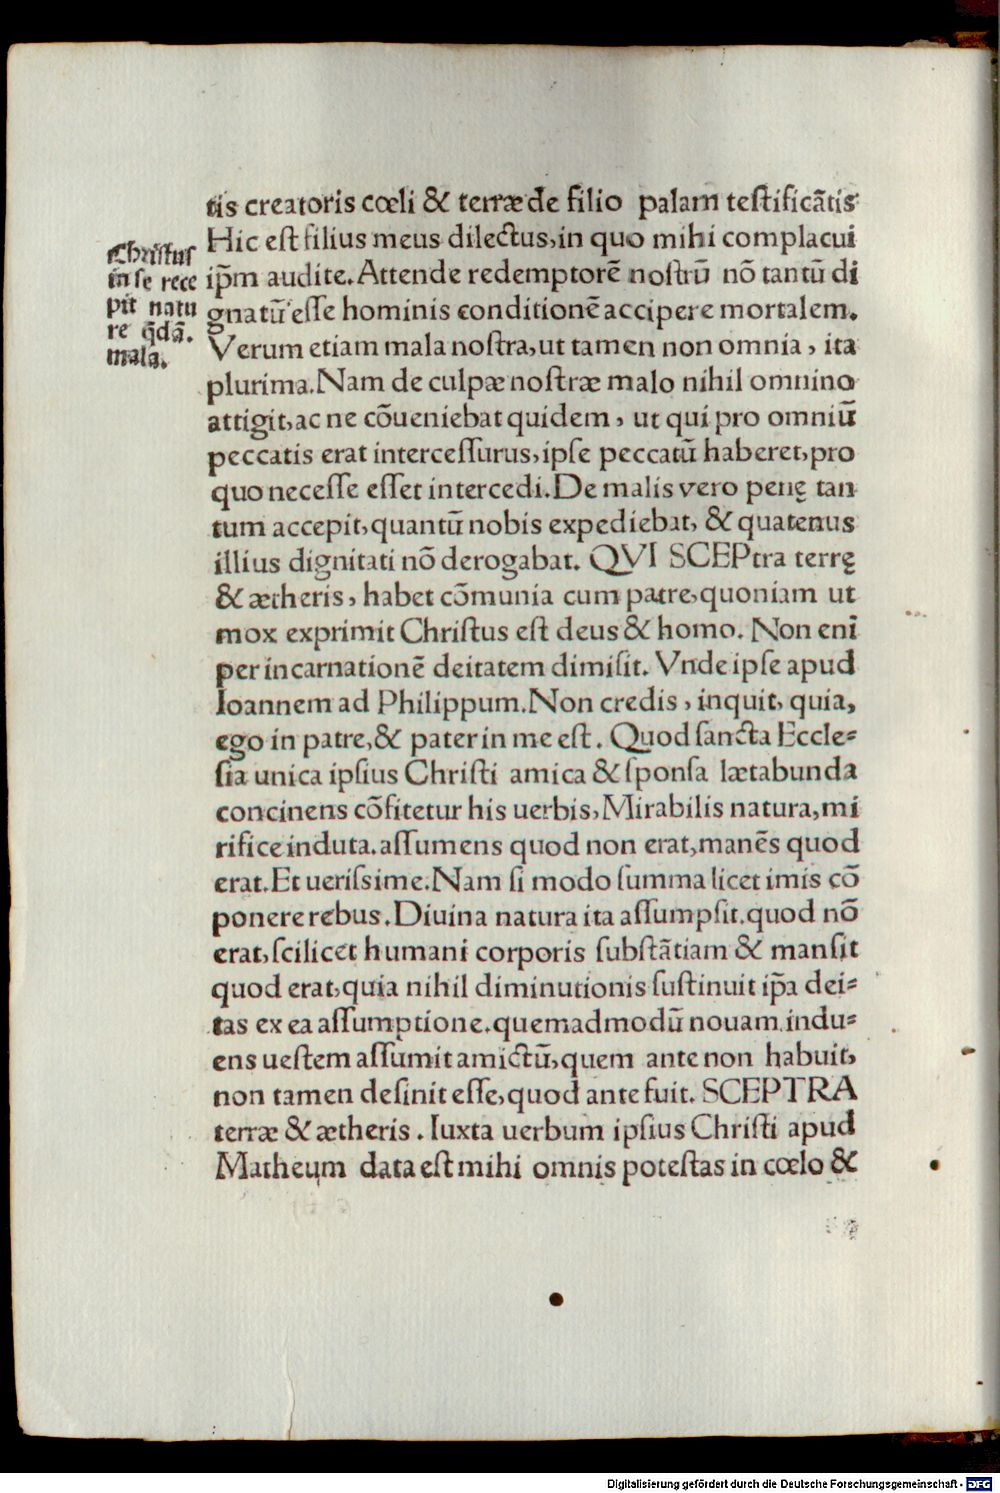 tis creatoris cœli & terræ de filio palam testificãtis
Hic est filius meus dilectus, in quo mihi complacui
ip̃m audite. Attende redemptorẽ nostrũ nõ tantũ di
gnatũ esse hominis conditionẽ accipere mortalem.
Verum etiam mala nostra, ut tamen non omnia, ita
plurima. Nam de culpæ nostræ malo nihil omnino
attigit, ac ne cõueniebat quidem, ut qui pro omniũ
peccatis erat intercessurus, ipse peccatũ haberet, pro
quo necesse esset intercedi. De malis vero penę tan
tum accepit, quantũ nobis expediebat, & quatenus
illius dignitati nõ derogabat. QVI SCEPtra terrę
& ætheris, habet cõmunia cum patre, quoniam ut
mox exprimit Christus est deus & homo. Non enĩ
per incarnationẽ deitatem dimisit. Vnde ipse apud
Ioannem ad Philippum. Non credis, inquit, quia,
ego in patre, & pater in me est. Quod sancta Eccle=
sia unica ipsius Christi amica & sponsa lætabunda
concinens cõfitetur his uerbis, Mirabilis natura, mi
rifice induta. assumens quod non erat, manẽs quod
erat. Et uerissime. Nam si modo summa licet imis cõ
ponere rebus. Diuina natura ita assumpsit. quod nõ
erat, scilicet humani corporis substãtiam & mansit
quod erat, quia nihil diminutionis sustinuit ip̃a dei=
tas ex ea assumptione. quemadmodũ nouam indu=
ens uestem assumit amictũ, quem ante non habuit,
non tamen desinit esse, quod ante fuit. SCEPTRA
terræ & ætheris. Iuxta uerbum ipsius Christi apud
Matheum data est mihi omnis potestas in cœlo &
Christus
in se rece
pit natu
re q̃dã.
mala.
Digitalisierung gefördert durch die Deutsche Forschungsgemeinschaft - DFG